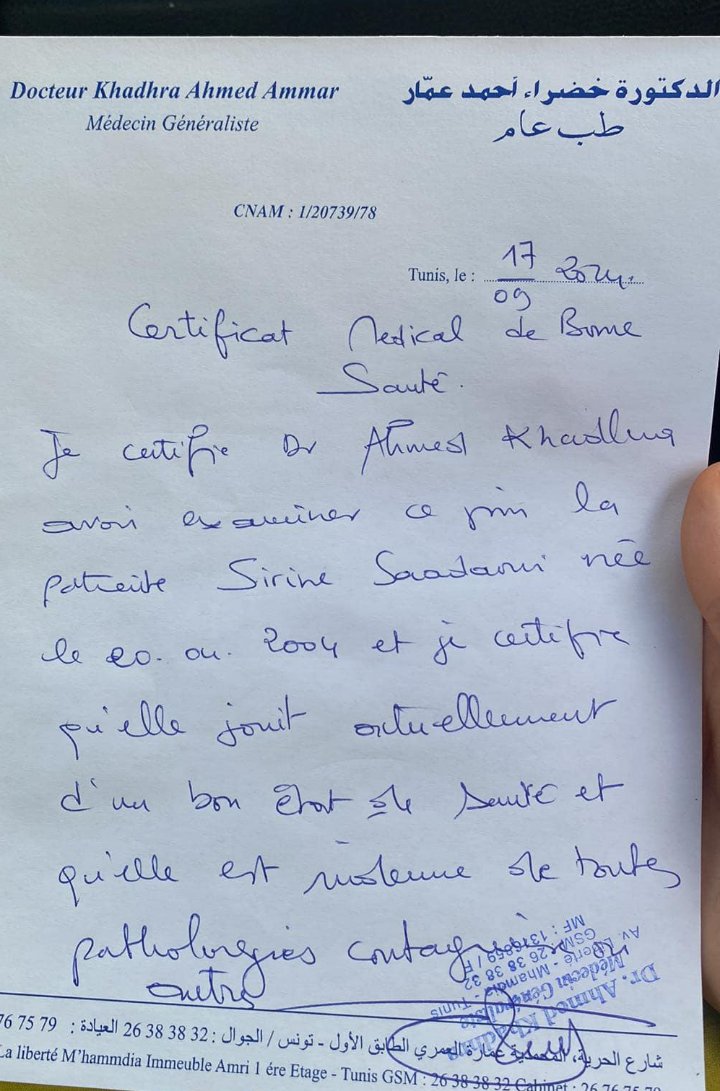 Docteur Khadhra Ahmed Ammar
الدكتورة خضراء أحمد عمّار
Médecin Généraliste
طب عام
CNAM : 1/20739/78
Tunis, le : 17/09 2024.
Certificat Medical de Bonne
Santé.
Je certifie Dr Ahmed Khadhra
avoir examiner ce jour la
patiente Sirine Saadaoui née
le 20. 04. 2004 et je certifie
qu'elle jouit actuellement
d'un bon état de santé et
qu'elle est indemne de toutes
pathologies contagieuses ou
autre
Dr. Ahmed Khadhra
Médecin Généraliste
Av. Liberté - Mhamdia - Tunis
GSM : 26 38 38 32
MF :
شارع الحرية، المحمدية عمارة العمري الطابق الأول - تونس / الجوال : 32 38 38 26 العيادة : 79 75 76
La liberté M'hammdia Immeuble Amri 1 ére Etage - Tunis GSM : 26 38 38 32 Cabinet : 26 76 75 79